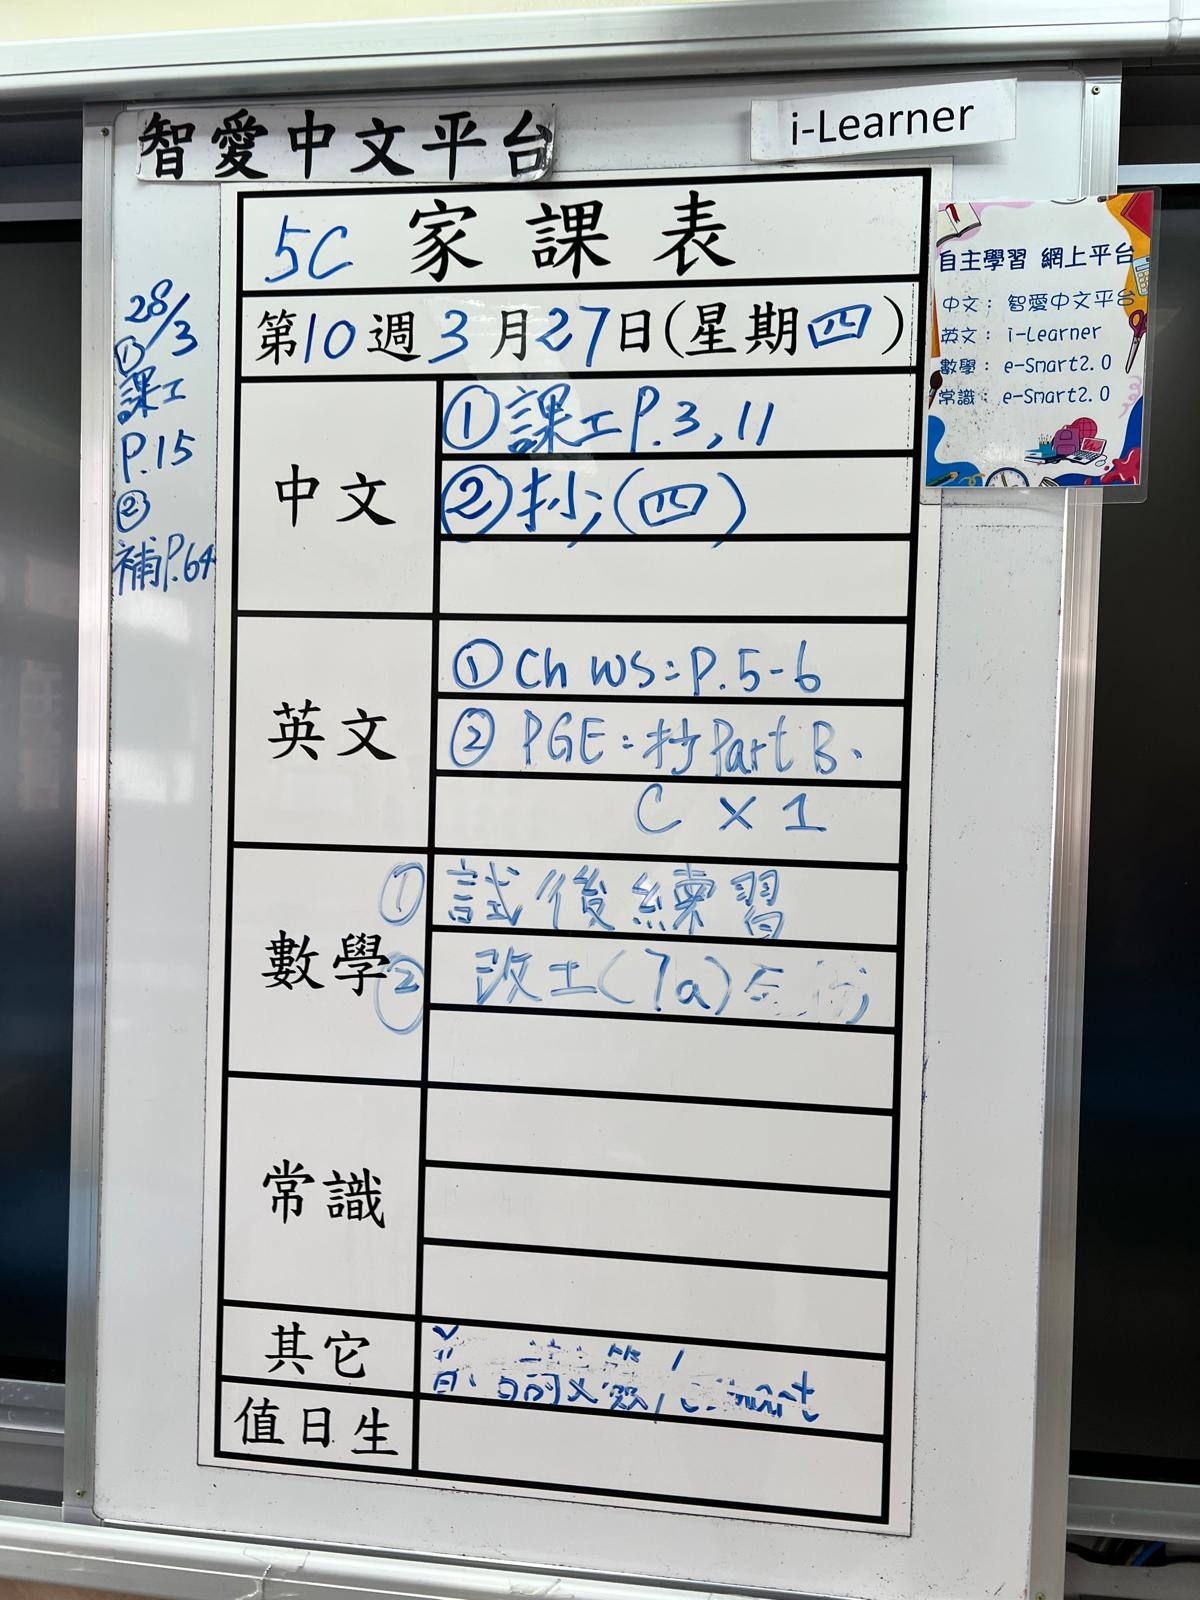 智愛中文平台
i-Learner
5C 家課表
第10週3月27日(星期四)
中文
①課工P.3,11
②抄(四)
英文
①Ch WS:P.5-6
②PGE:抄Part B、
C×1
數學
①試後練習
②改工(7a)
常識
其它
值日生
28/3
①
課工
P.15
②
補P.64
自主學習 網上平台
中文：智愛中文平台
英文：i-Learner
數學：e-Smart2.0
常識：e-Smart2.0